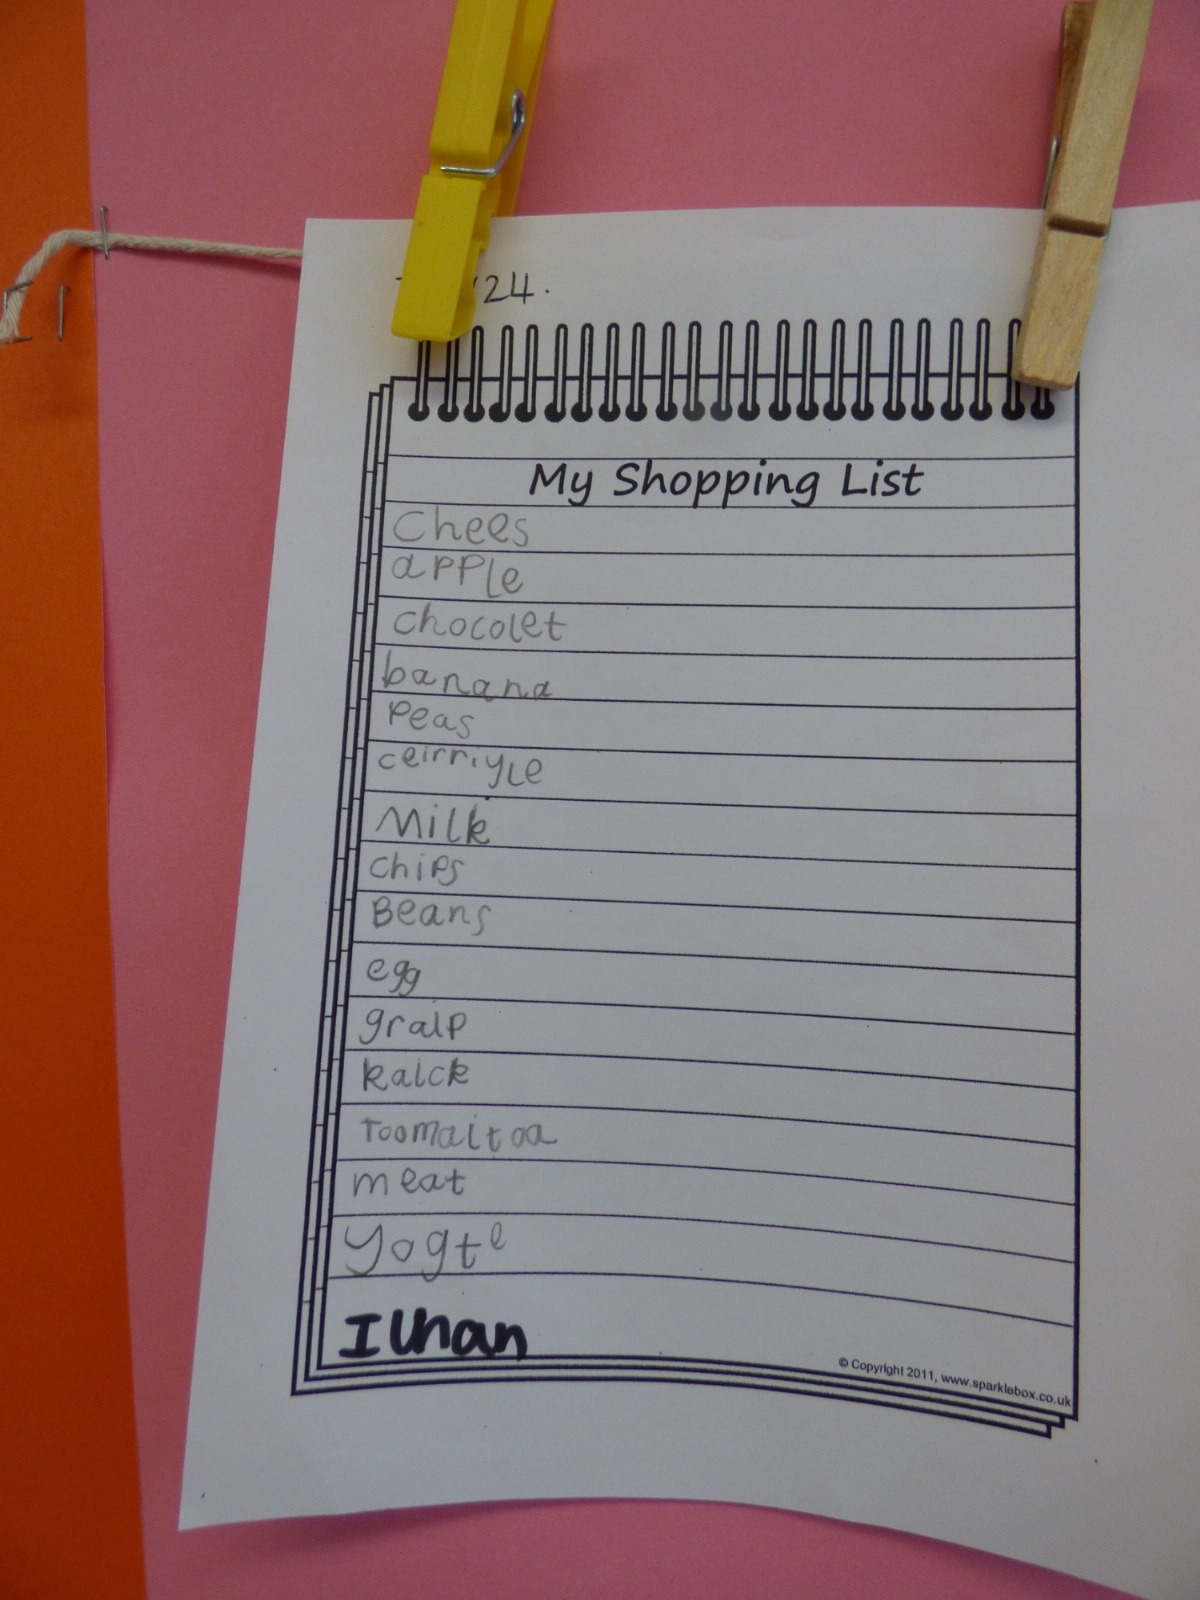 24.
My Shopping List
Chees
apple
chocolet
banana
Peas
ceirriyle
Milk
chips
Beans
egg
gralp
kalck
Toomaitoa
meat
Yogte
Ilhan
© Copyright 2011, www.sparklebox.co.uk